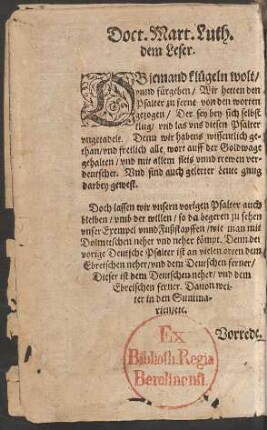 Doct. Mart. Luth.
dem Leser.
OB jemand klügeln wolt/
vnnd fürgeben/ Wir hetten den
Psalter zu ferne von den worten
gezogen/ Der sey bey sich selbst
klug/ vnd las vns diesen Psalter
vngetadelt. Denn wir habens wissentlich ge-
than/vnd freilich alle wort auff der Goldwage
gehalten/ vnd mit allem fleis vnnd trewen ver-
deutschet. Vnd sind auch gelerter leute gnug
darbey gewest.
Doch lassen wir vnsern vorigen Psalter auch
bleiben / vmb der willen / so da begeren zu sehen
vnser Exempel vnnd Fusstapffen/ wie man mit
Dolmetschen neher vnd neher kömpt. Denn der
vorige Deutsche Psalter ist an vielen orten dem
Ebreischen neher/vnd dem Deutschen ferner/
Dieser ist dem Deutschen neher/ vnd dem
Ebreischen ferner. Dauon wei-
ter in den Summa-
rien/etc.
Vorrede.
Ex
Biblioth. Regia
Berolinensi.